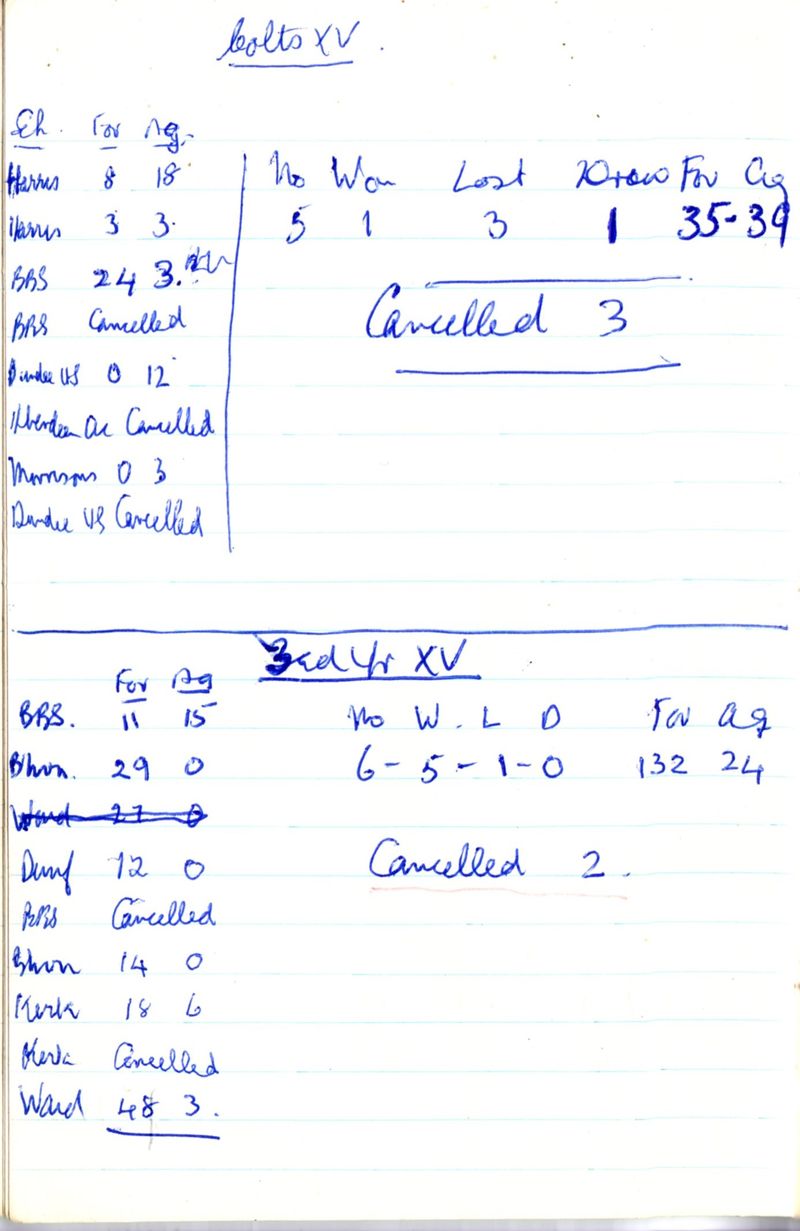 Colts XV.
Sch. For Ag.
Harris 8 18
Harris 3 3.
BBS 24 3.
BBS Cancelled
Dundee HS 0 12
Aberdeen Ac Cancelled
Morrisons 0 3
Dundee HS Cancelled
No Won Lost Drew For Ag
5 1 3 1 35-39
Cancelled 3
3rd Yr XV
For Ag
BBS. 11 15
Bhvn. 29 0
Ward 27 0
Dunf 12 0
BBS Cancelled
Bhvn 14 0
Kirk 18 6
Kirk Cancelled
Ward 48 3.
No W. L D For Ag
6 - 5 - 1 - 0 132 24
Cancelled 2.